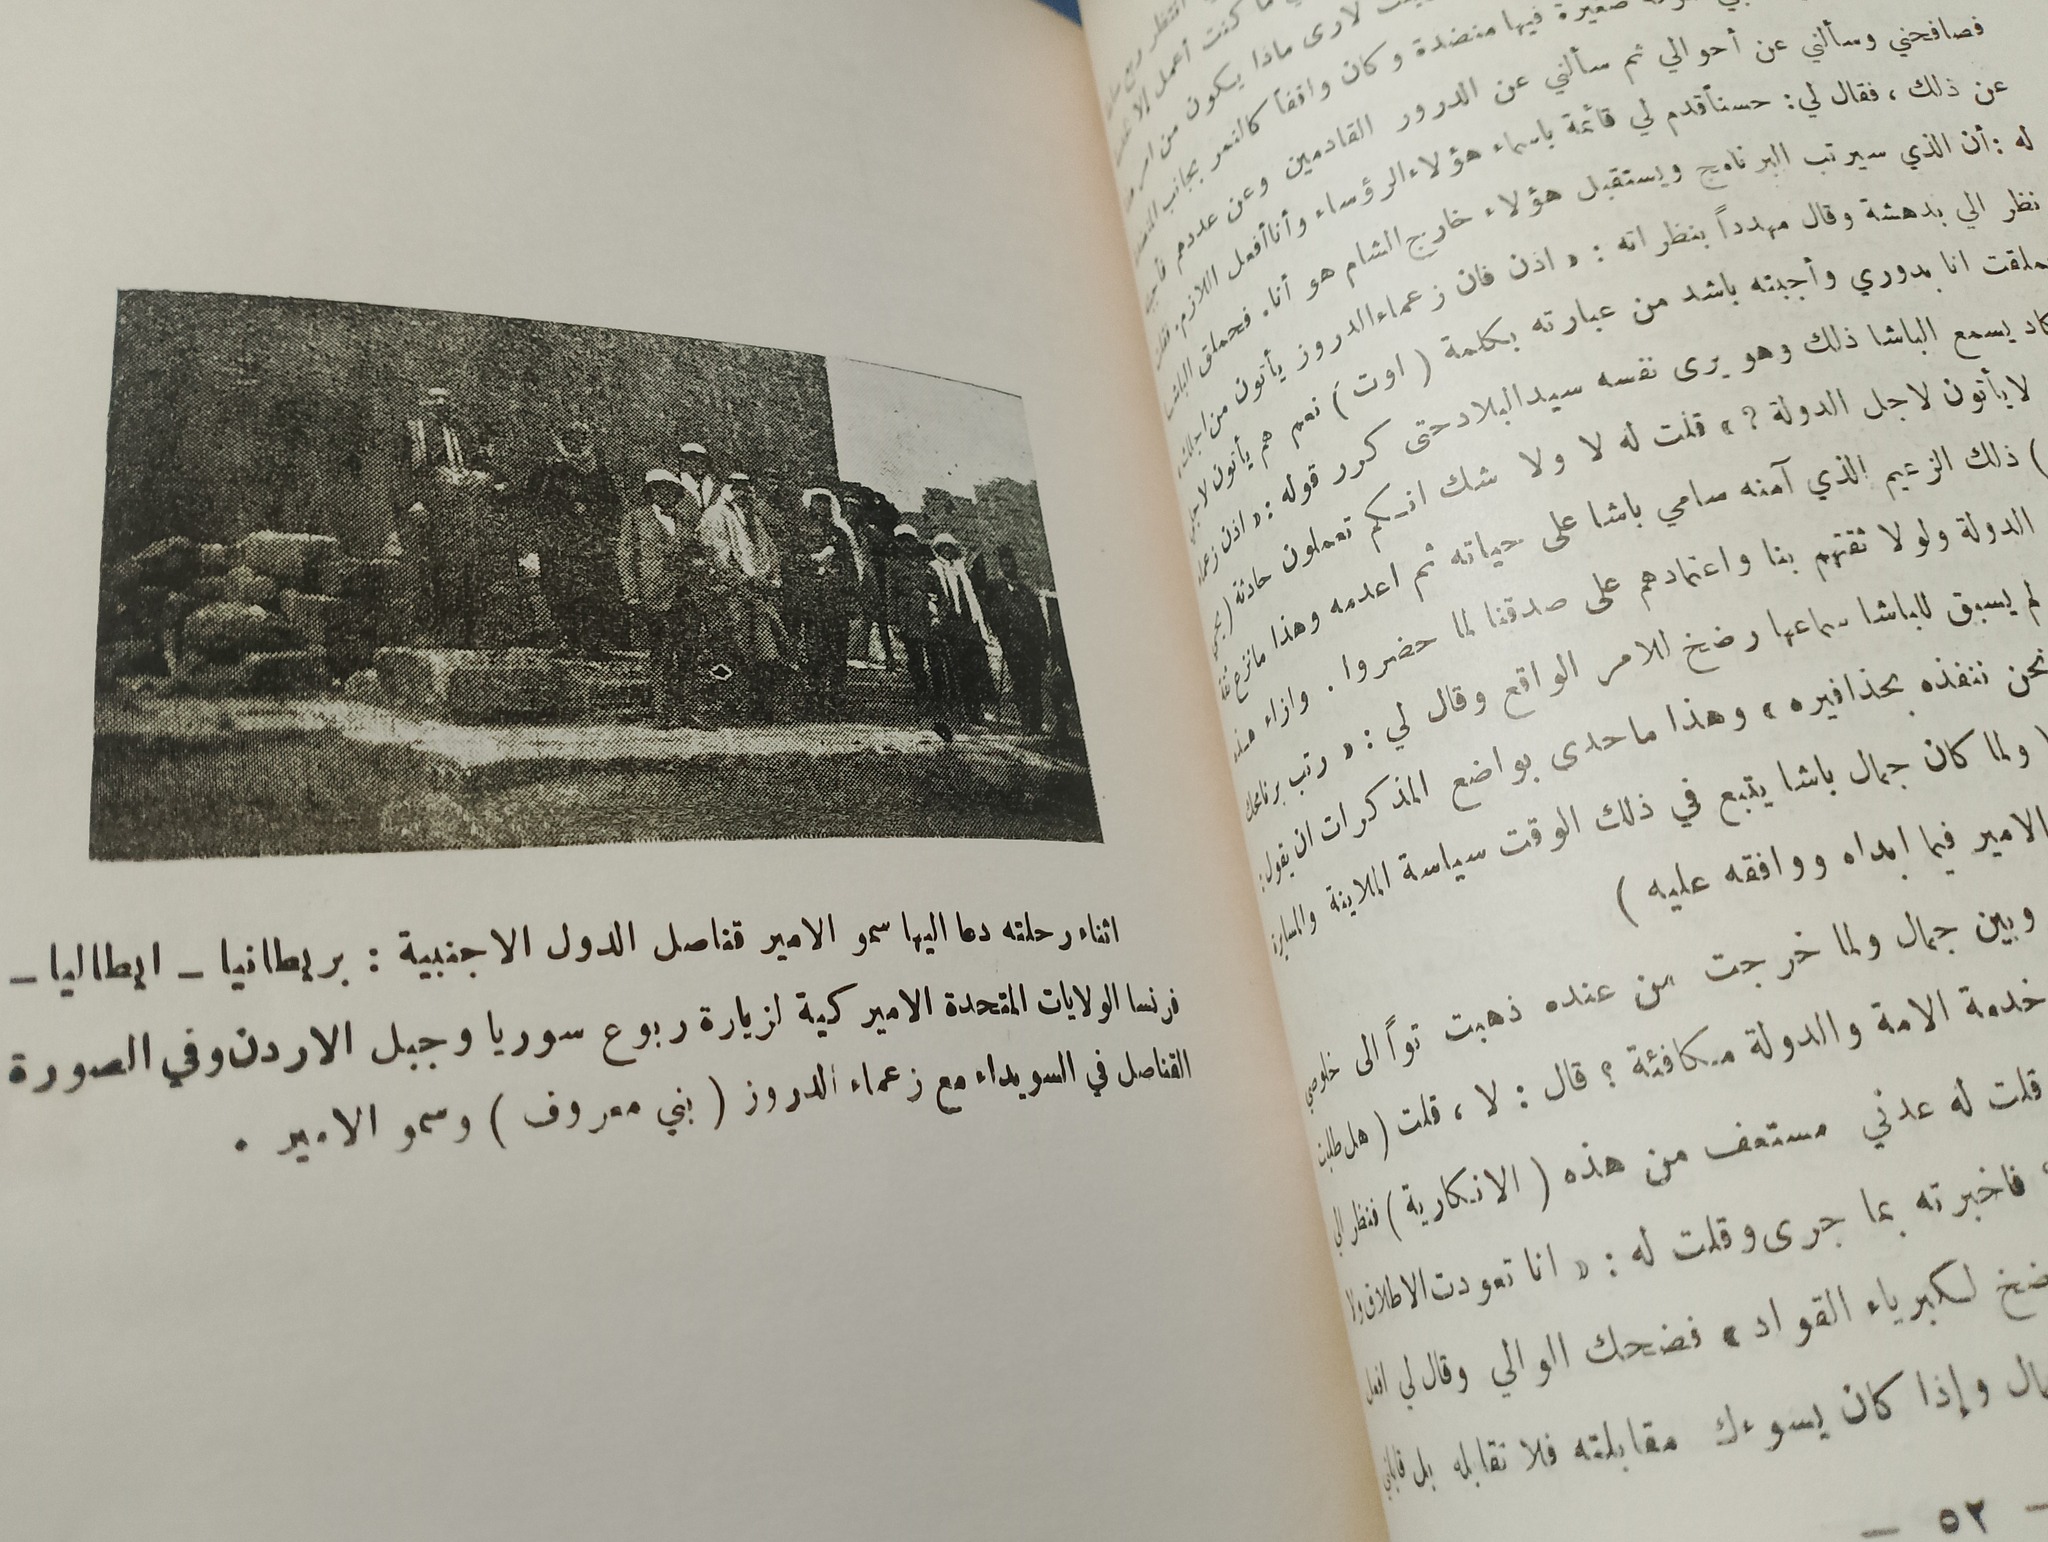 انتظر
ما كنت أعمل إلا
لارى ماذا يكون من امره
صغيرة فيها منضدة وكان واقفاً كالنمر بجانب المنضدة
فصافحني وسألني عن أحوالي ثم سألني عن الدروز القادمين وعن عددهم فأجبته
عن ذلك ، فقال لي: حسناً قدم لي قائمة باسماء هؤلاء الرؤساء وأنا أفعل اللازم. فقلت
له : أن الذي سيرتب البرنامج ويستقبل هؤلاء خارج الشام هو أنا. فحملق الباشا
نظر الي بدهشة وقال مهدداً بنظراته : « اذن فان زعماء الدروز يأتون من اجلك
انا بدوري وأجبته باشد من عبارته بكلمة ( اوت ) نعم هم يأتون لاجلي
يسمع الباشا ذلك وهو يرى نفسه سيد البلاد حتى كرر قوله : « اذن زعماء
لا يأتون لاجل الدولة ؟ » قلت له لا ولا شك انكم تعملون حادثة ( يحيى
) ذلك الزعيم الذي آمنه سامي باشا على حياته ثم اعدمه وهذا ما نزع
الدولة ولولا ثقتهم بنا واعتمادهم على صدقنا لما حضروا . وازاء هذه
لم يسبق للباشا سماعها رضخ للامر الواقع وقال لي : « رتب برنامجك
نحن ننفذه بحذافيره » وهذا ما حدى بواضع المذكرات ان يقول :
ولما كان جمال باشا يتبع في ذلك الوقت سياسة الملاينة والمسايرة
الامير فيما ابداه ووافقه عليه )
وبين جمال ولما خرجت من عنده ذهبت تواً الى خلوصي
خدمة الامة والدولة مكافئة ؟ قال : لا ، قلت ( هل طلبت
قلت له عدني مستعف من هذه ( الانكارية ) فنظر الي
فاخبرته بما جرى وقلت له : « انا تعودت الاطلاق ولا
لكبرياء القواد » فضحك الوالي وقال لي افعل
وإذا كان يسوءك مقابلته فلا تقابله بل قابلني
— ٥٢ —
اثناء رحلته دعا اليها سمو الامير قناصل الدول الاجنبية : بريطانيا – ايطاليا –
فرنسا الولايات المتحدة الاميركية لزيارة ربوع سوريا وجبل الاردن وفي الصورة
القناصل في السويداء مع زعماء الدروز ( بني معروف ) وسمو الامير .